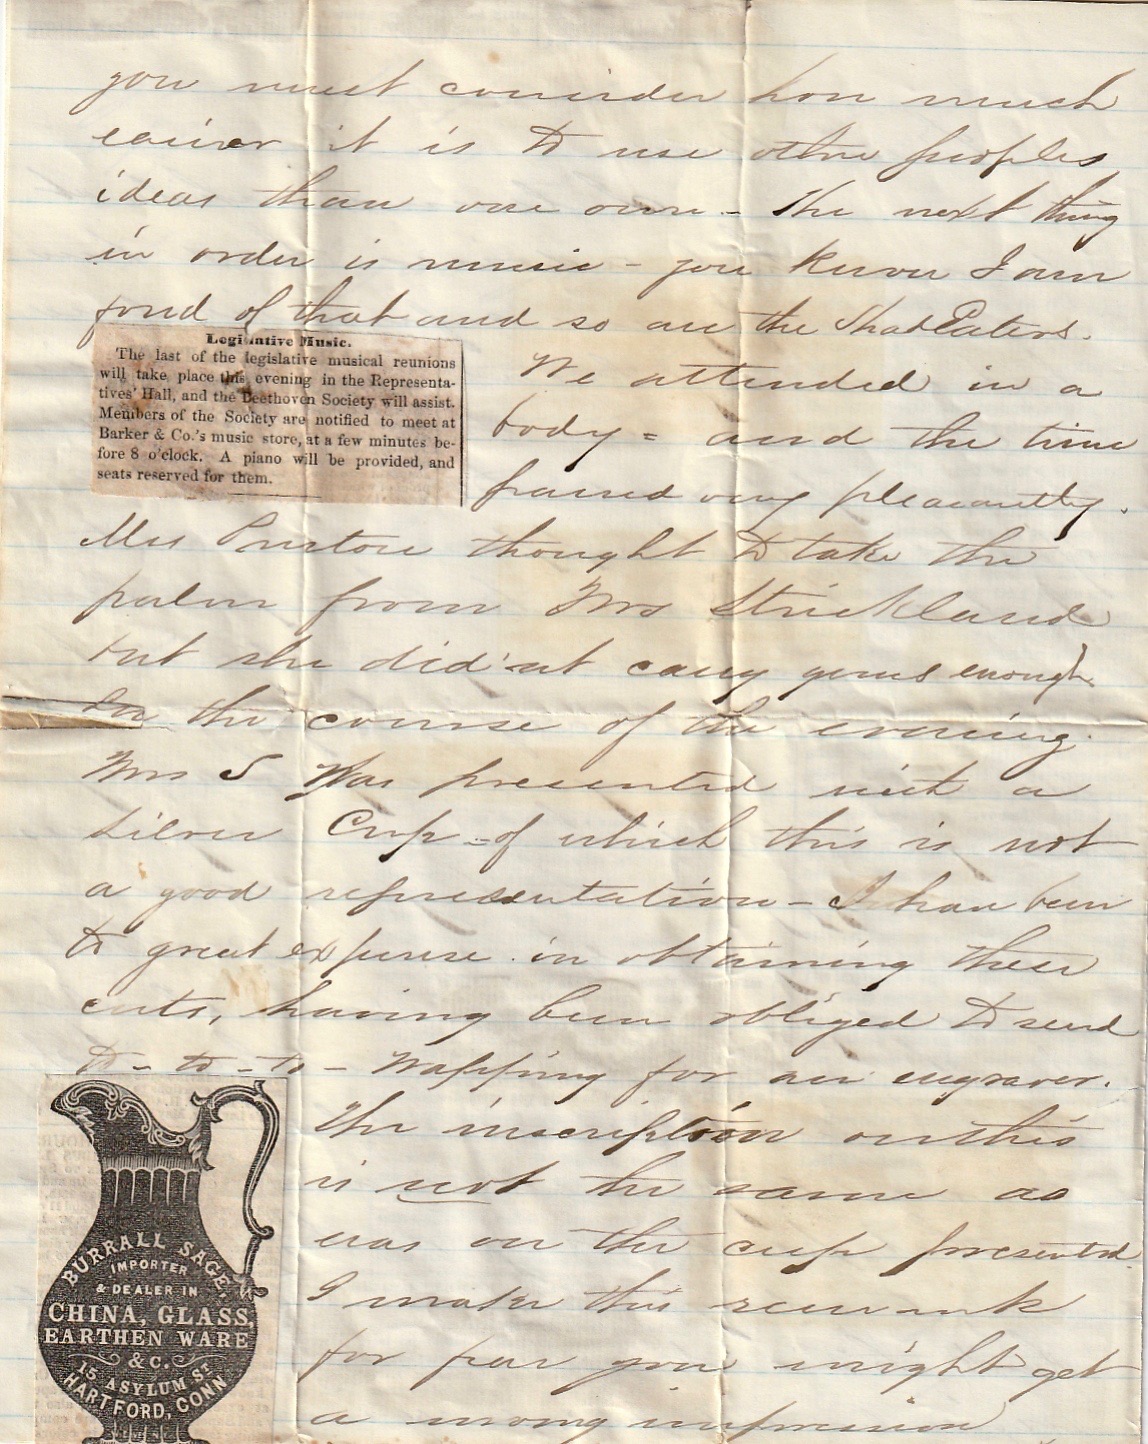 you must consider how much
easier it is to use other peoples
ideas than one own - The next thing
in order is music - you know I am
fond of that and so are the Shad Eaters.
Legislative Music.
The last of the legislative musical reunions
will take place this evening in the Representa-
tives' Hall, and the Beethoven Society will assist.
Members of the Society are notified to meet at
Barker & Co.'s music store, at a few minutes be-
fore 8 o'clock. A piano will be provided, and
seats reserved for them.
We attended in a
body = and the time
passed very pleasantly.
Mrs Preston thought to take the
palm from Mrs Strickland
but she did'nt carry guns enough.
In the course of the evening
Mrs S Was presented with a
Silver Cup - of which this is not
a good representation - I have been
to great expense in obtaining these
cuts, having been obliged to send
to - to - to - Wapping for an engraver.
The inscription on this
is not the same as
was on the cup presented
I make this remark
for fear you might get
a wrong impression
BURRALL SAGE,
IMPORTER
& DEALER IN
CHINA, GLASS,
EARTHEN WARE
& C.
15 ASYLUM ST
HARTFORD, CONN